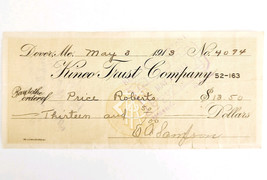 Dover, Mo. May 3 1913 No. 4094
Kinco Trust Company 52-163
Pay to the order of Price Roberts $13.50
Thirteen and 50/100 Dollars